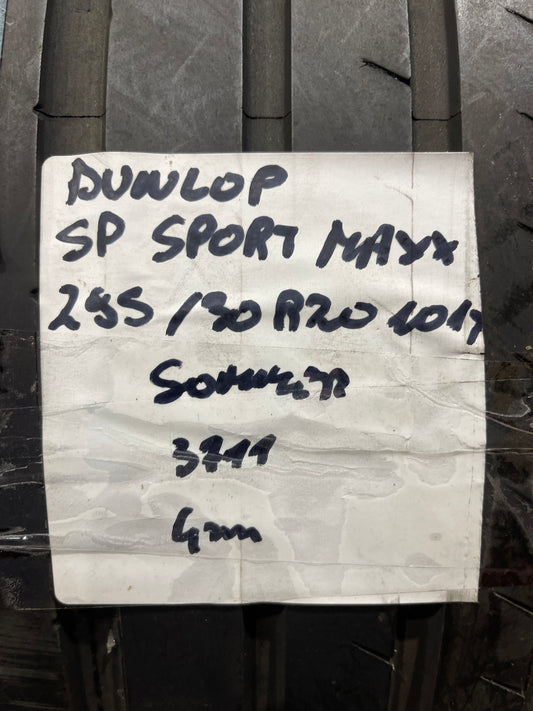 DUNLOP
SP SPORT MAXX
295/30 R20 101Y
Sommer
3711
4mm